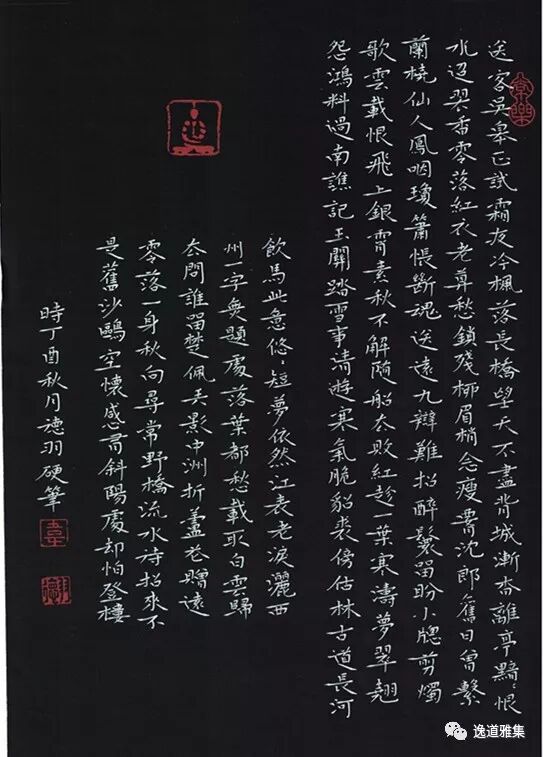 常樂
送客吳皋正試霜夜冷楓落長橋望天不盡背城漸杳離亭黯〻恨
水迢翠香零落紅衣老暮愁鎖殘柳眉梢念瘦腰沈郎舊日曾繫
蘭橈仙人鳳咽瓊簫悵斷魂送遠九辯難招醉鬟留盼小牕剪燭
歌雲載恨飛上銀霄素秋不解隨船去敗紅趁一葉寒濤夢翠翹
怨鴻料過南譙記玉關踏雪事清遊寒氣脆貂裘傍枯林古道長河
飲馬此意悠〻短夢依然江表老淚灑西
州一字無題處落葉都愁載取白雲歸
去問誰留楚佩弄影中洲折蘆花贈遠
零落一身秋向尋常野橋流水待招來不
是舊沙鷗空懷感有斜陽處却怕登樓
時丁酉秋月德羽硬筆
逸道雅集